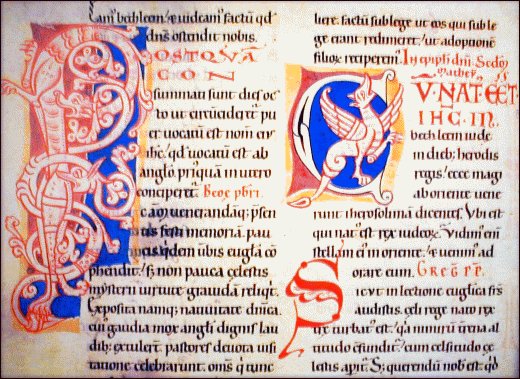 bethleem / & uideam factū qđ
dn̄s ostendit nobis.
POSTQVĀ
CON
summati sunt dies oc
to ut circūcideret pu
uocatū est nom̄
ihc̄ / qđ uocatū est ab
anglo in utero
conciperet. Bede pbri.
memoriā
uerbis euglā cō
phendit / sȝ non pauca celestis
mysterii uirtute grauida reliqt.
Exposita namq; natiuitate dn̄ica.
cui gaudia mox angli dignis lau
dib; extulere. pastores deuota uisi
tatione celebrarunt. om̄s q tunc
liere. factū sub lege ut eos qui sub le
ge erant redimeret / ut adoptionē
filioȝ reciperem. In epiphī dn̄i Scđm
Matheū.
CV̄ NATEET
IHC. IN
bethleem iude
in dieb; herodis
regis / ecce magi
ab oriente uene
runt iherosolimā dicentes. Vbi est
qui nat est rex iudeoȝ. Vidim eni
stellam ei in oriente / & uenim ad
orare eum. GREG PP.
Sicut in lectione euglica frs
audistis. celi rege nato rex
tre turbat est. qa nimirū trena al
titudo cfundit / cum celsitudo ce
lestis aperit. S; querendū nob est. qđ